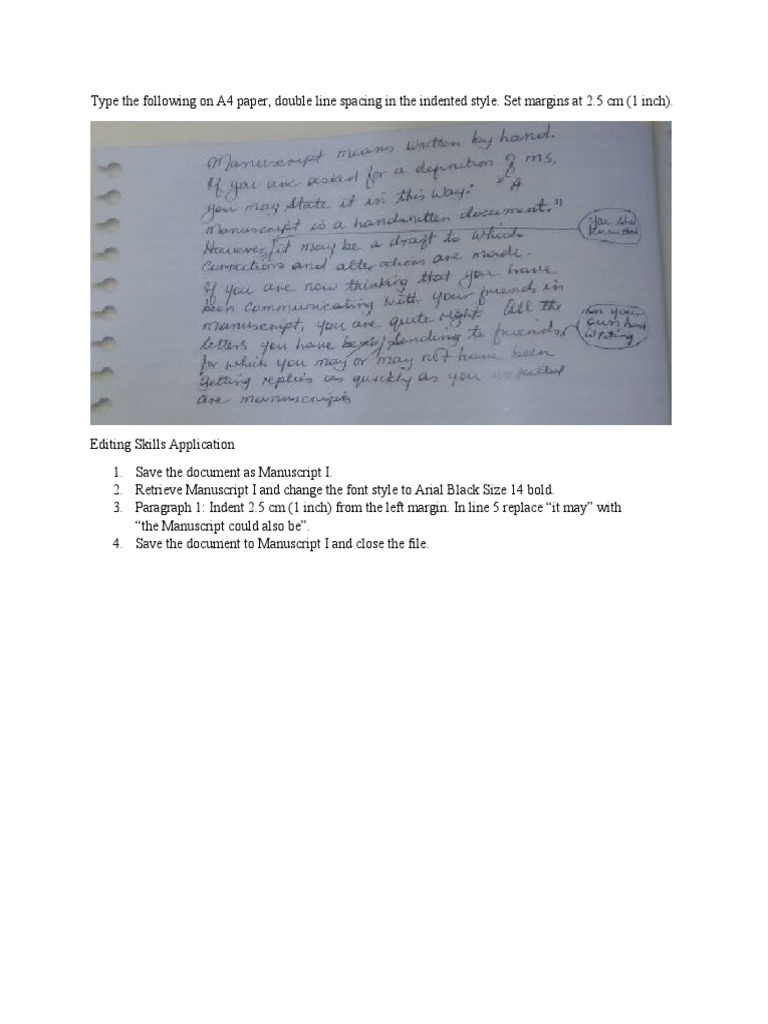 Type the following on A4 paper, double line spacing in the indented style. Set margins at 2.5 cm (1 inch).
Manuscript means written by hand.
If you are asked for a definition of ms,
you may state it in this way: "A
Manuscript is a handwritten document."
you
However, it may be a draft to which
corrections and alterations are made.
If you are now thinking that you have
been communicating with your friends in
manuscript, you are quite right. All the
in your
own hand
writing
letters you have been sending to friends,
for which you may or may not have been
getting replies as quickly as you expected
are manuscripts
Editing Skills Application
1. Save the document as Manuscript I.
2. Retrieve Manuscript I and change the font style to Arial Black Size 14 bold.
3. Paragraph 1: Indent 2.5 cm (1 inch) from the left margin. In line 5 replace “it may” with
“the Manuscript could also be”.
4. Save the document to Manuscript I and close the file.